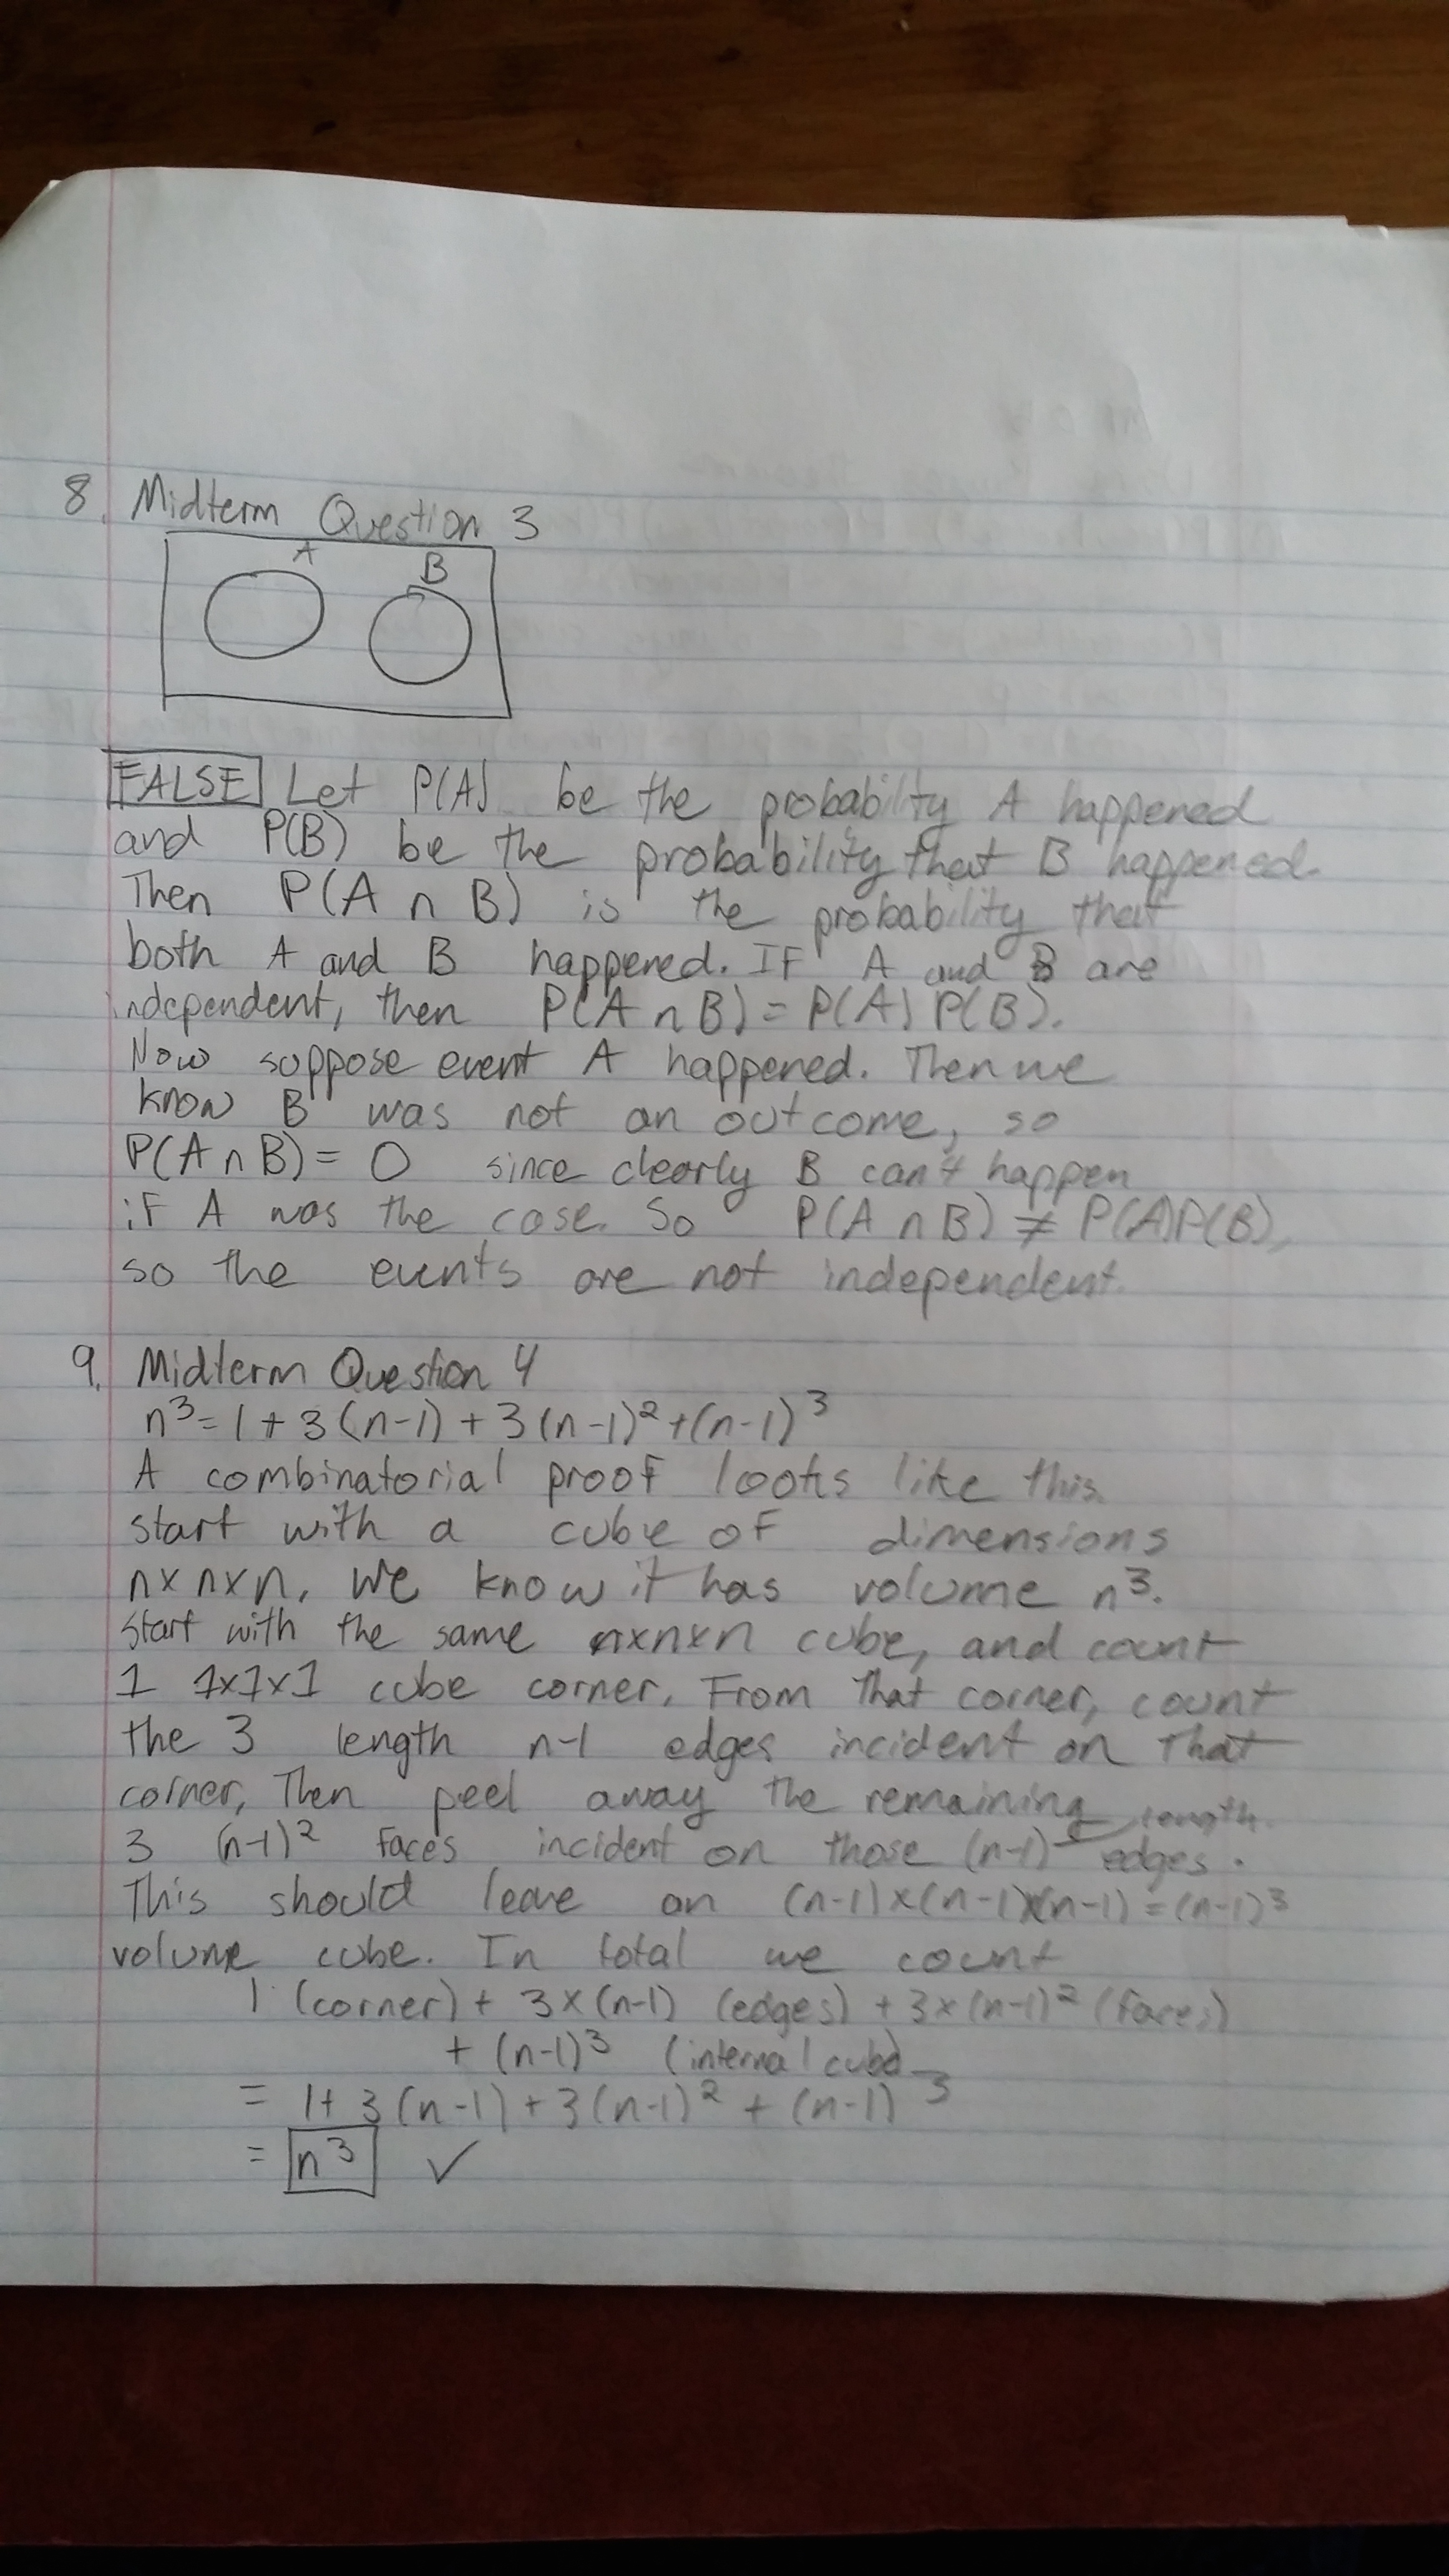 8. Midterm Question 3
A
B
FALSE Let P(A) be the probability A happened
and P(B) be the probability that B happened.
Then P(A ∩ B) is the probability that
both A and B happened. IF A and B are
independent, then P(A ∩ B) = P(A) P(B).
Now suppose event A happened. Then we
know B was not an outcome, so
P(A ∩ B) = 0 since clearly B can't happen
if A was the case. So P(A ∩ B) ≠ P(A)P(B),
so the events are not independent.
9. Midterm Question 4
n³ = 1 + 3(n-1) + 3(n-1)² + (n-1)³
A combinatorial proof looks like this.
start with a cube of dimensions
n×n×n, we know it has volume n³.
start with the same n×n×n cube, and count
1 1×1×1 cube corner. From that corner, count
the 3 length n-1 edges incident on that
corner, Then peel away the remaining
3 (n-1)² faces incident on those (n-1) length edges.
This should leave an (n-1)×(n-1)×(n-1) = (n-1)³
volume cube. In total we count
1 (corner) + 3×(n-1) (edges) + 3×(n-1)² (faces)
+ (n-1)³ (internal cube)
= 1+ 3(n-1) + 3(n-1)² + (n-1)³
= n³ ✓